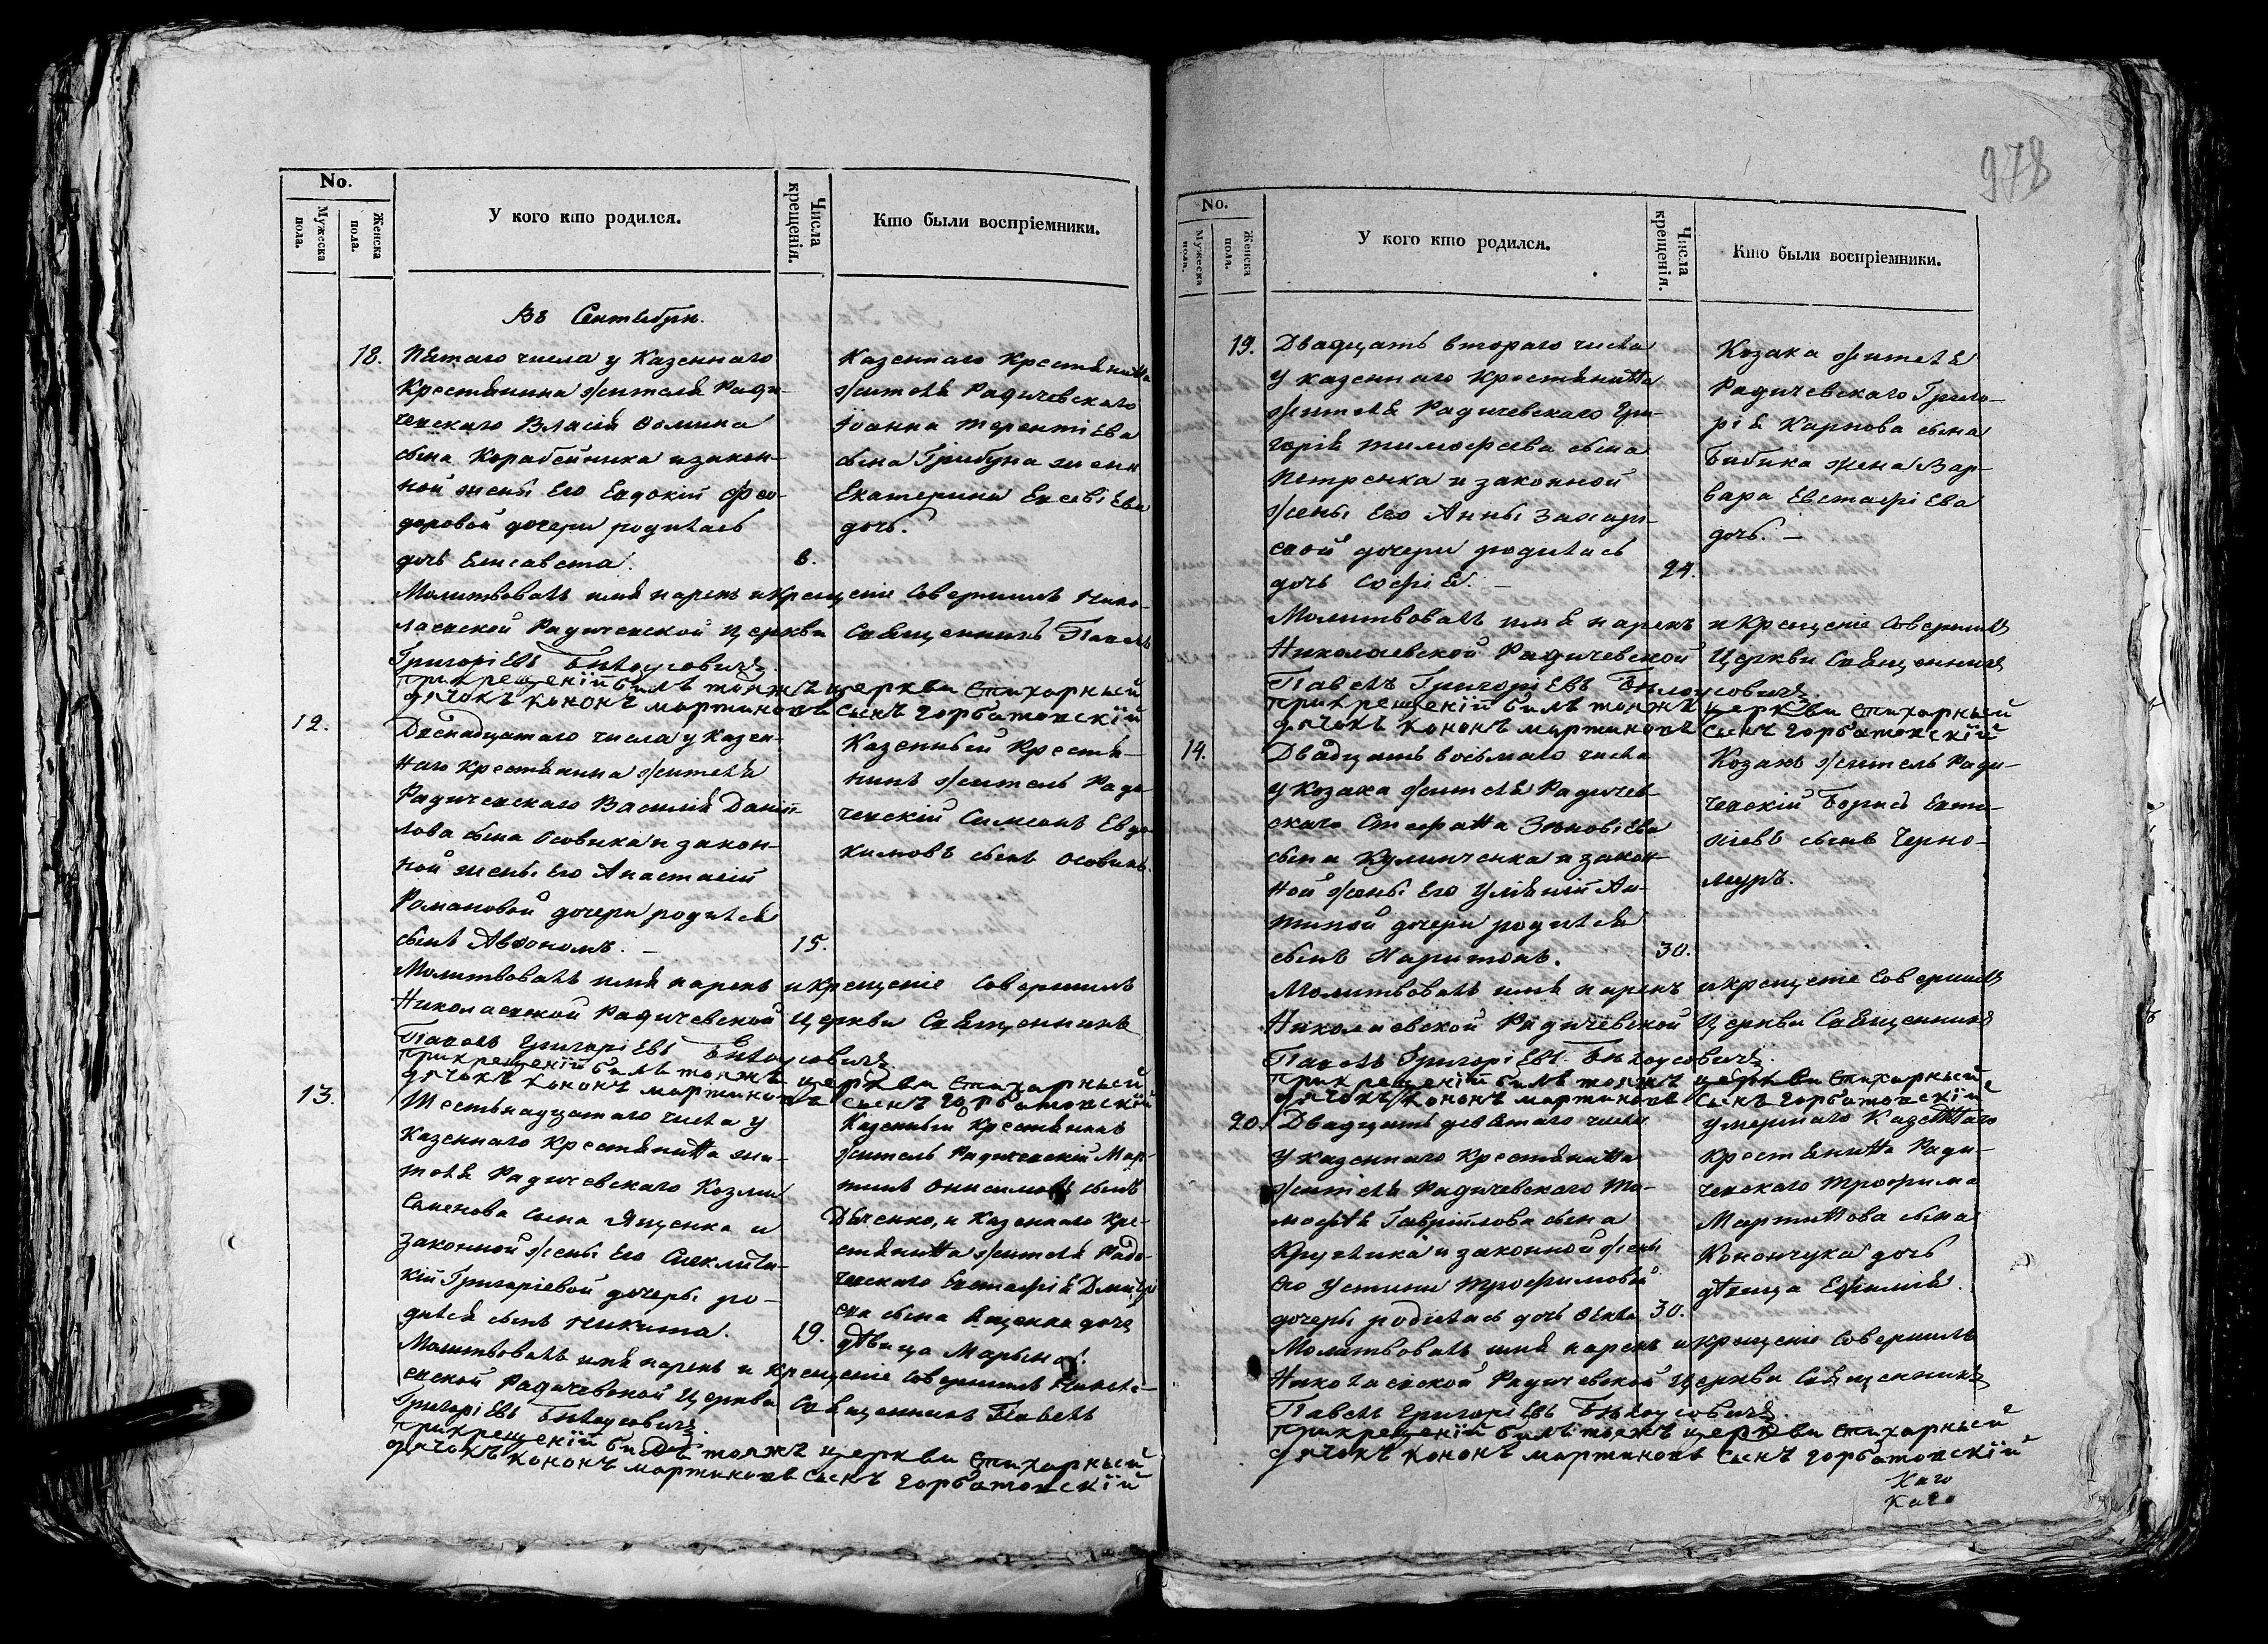 No.
Мужеска пола.
Женска пола.
У кого кто родился.
Числа крещенія.
Кто были воспріемники.
Въ Сентябрѣ.
18.
Пятаго числа у Казеннаго
Крестьянина жителя Ради-
чевскаго Власія Ѳомина
сына Корабейника и закон-
ной жены его Евдокіи Фео-
доровой дочери родилась
дочь Елисавета.
6.
Казеннаго Крестьянина
жителя Радичевскаго
Іоанна Терентіева
сына Грибуна жена
Екатерина Евсевіева
дочь.
Молитвовалъ имя нарекъ и крещеніе совершилъ Нико-
лаевской Радичевской Церкви Священникъ Павелъ
Григоріевъ Бѣлоусовичъ.
При крещеніи билъ тояжъ церкви стихарный
дячокъ Кононъ Мартиновъ сынъ Горбатовскій
12.
Двенадцатаго числа у казен-
наго крестьянина жителя
Радичевскаго Василія Даніи-
лова сына Осовика и закон-
ной жены его Анастасіи
Романовой дочери родился
сынъ Автономъ. –
15.
Казенный Крестья-
нинъ житель Ради-
чевскій Симеонъ Евдо-
кимовъ сынъ Осовикъ.
Молитвовалъ имя нарекъ и крещеніе совершилъ
Николаевской Радичевской Церкви Священникъ
Павелъ Григоріевъ Бѣлоусовичъ.
При крещеніи билъ тояжъ церкви стихарный
дячокъ Кононъ Мартиновъ сынъ Горбатовскій
13.
Шестьнадцатаго числа у
Казеннаго Крестьянина жи-
теля Радичевскаго Козми
Семенова сына Ященка и
законной жены его
Григоріевой дочеры ро-
дился сынъ Никита.
19.
Казенный Крестьянинъ
житель Радичевскій Мар-
тинъ Онисимовъ сынъ
Дяченко, и Казеннаго Кре-
стьянина жителя Ради-
чевскаго Евстафія Дмитрі-
ева сына Ященка дочь
дѣвица Марына.
Молитвовалъ имя нарекъ и крещеніе совершилъ Никола-
евской Радичевской Церкви Священникъ Павелъ
Григоріевъ Бѣлоусовичъ.
При крещеніи билъ тояжъ церкви стихарный
дячокъ Кононъ Мартиновъ сынъ Горбатовскій
978
No.
Мужеска пола.
Женска пола.
У кого кто родился.
Числа крещенія.
Кто были воспріемники.
19.
Двадцать втораго числа
у казеннаго Крестьянина
жителя Радичевскаго Гри-
горія Тимофеева сына
Петренка и законной
жены его Анны Захарі-
евой дочери родилась
дочь Софія. –
24.
Козака жителя
Радичевскаго Григо-
рія Карпова сына
Бибика жена Вар-
вара Евстафіева
дочь. –
Молитвовалъ имя нарекъ и крещеніе совершилъ
Николаевской Радичевской Церкви Священникъ
Павелъ Григоріевъ Бѣлоусовичъ.
При крещеніи билъ тояжъ церкви стихарный
дячокъ Кононъ Мартиновъ сынъ Горбатовскій
14.
Двадцать восьмаго числа
у Козака жителя Радичев-
скаго Стефана Зѣновіева
сына Кулинченка и закон-
ной жены его Уліяніи Ан-
тиной дочери родился
сынъ Харитонъ.
30.
Козакъ житель Ради-
чевскій Борисъ
сынъ Черно-
муръ.
Молитвовалъ имя нарекъ и крещеніе совершилъ
Николаевской Радичевской Церкви Священникъ
Павелъ Григоріевъ Бѣлоусовичъ.
При крещеніи билъ тояжъ церкви стихарный
дячокъ Кононъ Мартиновъ сынъ Горбатовскій
20.
Двадцать девятаго числа
у казеннаго Крестьянина
жителя Радичевскаго Ти-
мофея Гавріилова сына
Круглика и законной жены
его Устины Трофимовой
дочеры родилась дочь Ѳекла
30.
умершаго Казеннаго
крестьянина Ради-
чевскаго Трофима
Мартинова сына
Конончука дочь
дѣвица Ефимія.
Молитвовалъ имя нарекъ и крещеніе совершилъ
Николаевской Радичевской Церкви Священникъ
Павелъ Григоріевъ Бѣлоусовичъ.
При крещеніи билъ тояжъ церкви стихарный
дячокъ Кононъ Мартиновъ сынъ Горбатовскій
Каго
Каго